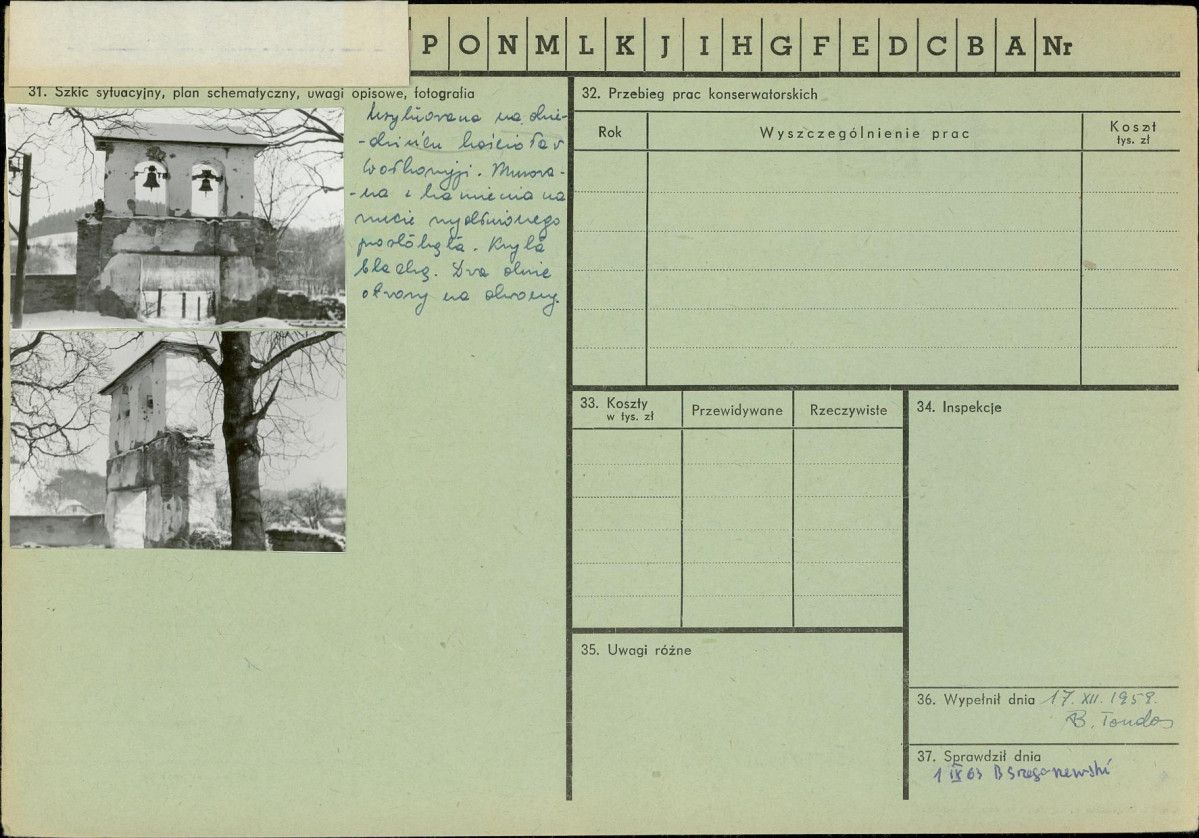 P O N M L K J I H G F E D C B A Nr
31. Szkic sytuacyjny, plan schematyczny, uwagi opisowe, fotografia
Usytuowana na dzie-
-dzińcu kościoła w
Muro-
-na z kamienia na
rzucie wydłużonego
prostokąta. Kryta
blachą. Dwa
otwory na dzwony.
32. Przebieg prac konserwatorskich
Rok
Wyszczególnienie prac
Koszt
tys. zł
33. Koszty
w tys. zł
Przewidywane
Rzeczywiste
34. Inspekcje
35. Uwagi różne
36. Wypełnił dnia 17. XII. 1959.
B. Tondos
37. Sprawdził dnia
1 IX 63